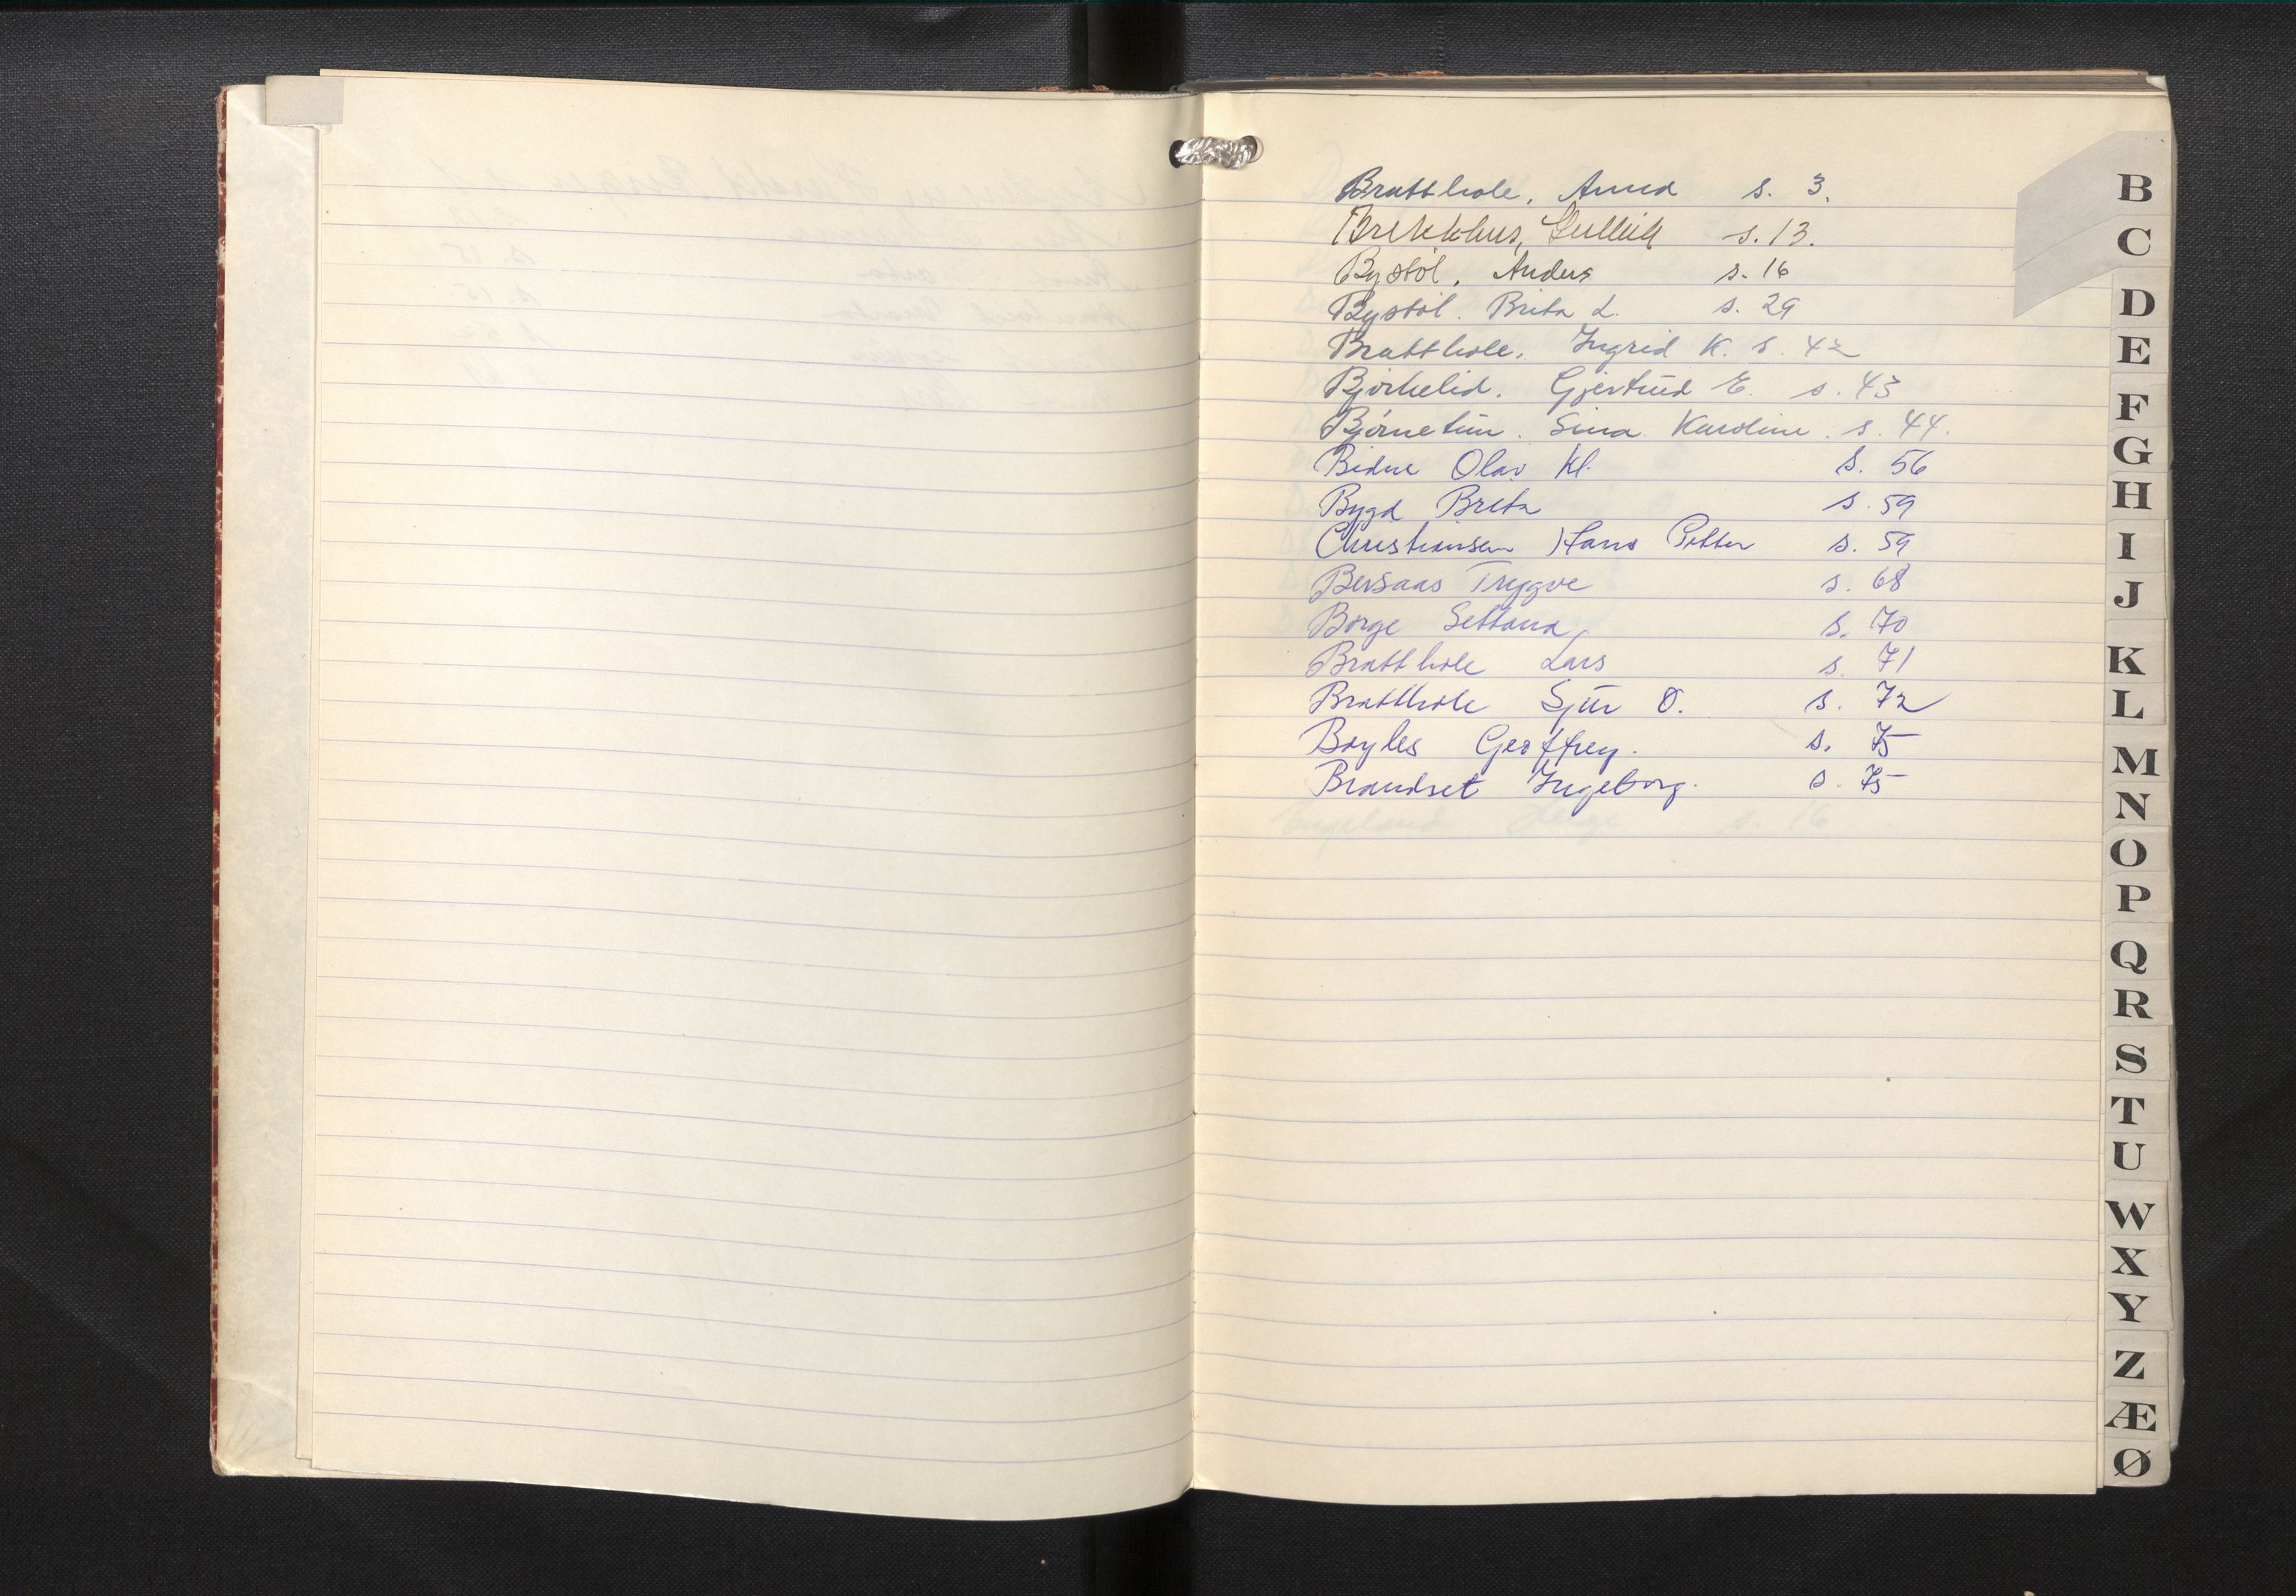 Bratthole, Anna s. 3.
Brekkhus, Gullik s. 13.
Bystøl, Anders s. 16
Bystøl. Brita L. s. 29
Bratthole, Ingrid K. s. 42
Bjørkelid. Gjertrud E. s. 43
Bjørnetun. Sina Karoline. s. 44.
Bidne Olav Kl. s. 56
Bygd Brita s. 59
Christiansen Hans Petter s. 59
Bersaas Trygve s. 68
Børge s. 70
Bratthole Lars s. 71
Bratthole Sjur O. s. 72
Boyles Geoffrey. s. 75
Brandset Ingeborg. s. 75
B
C
D
E
F
G
H
I
J
K
L
M
N
O
P
Q
R
S
T
U
W
X
Y
Z
Æ
Ø